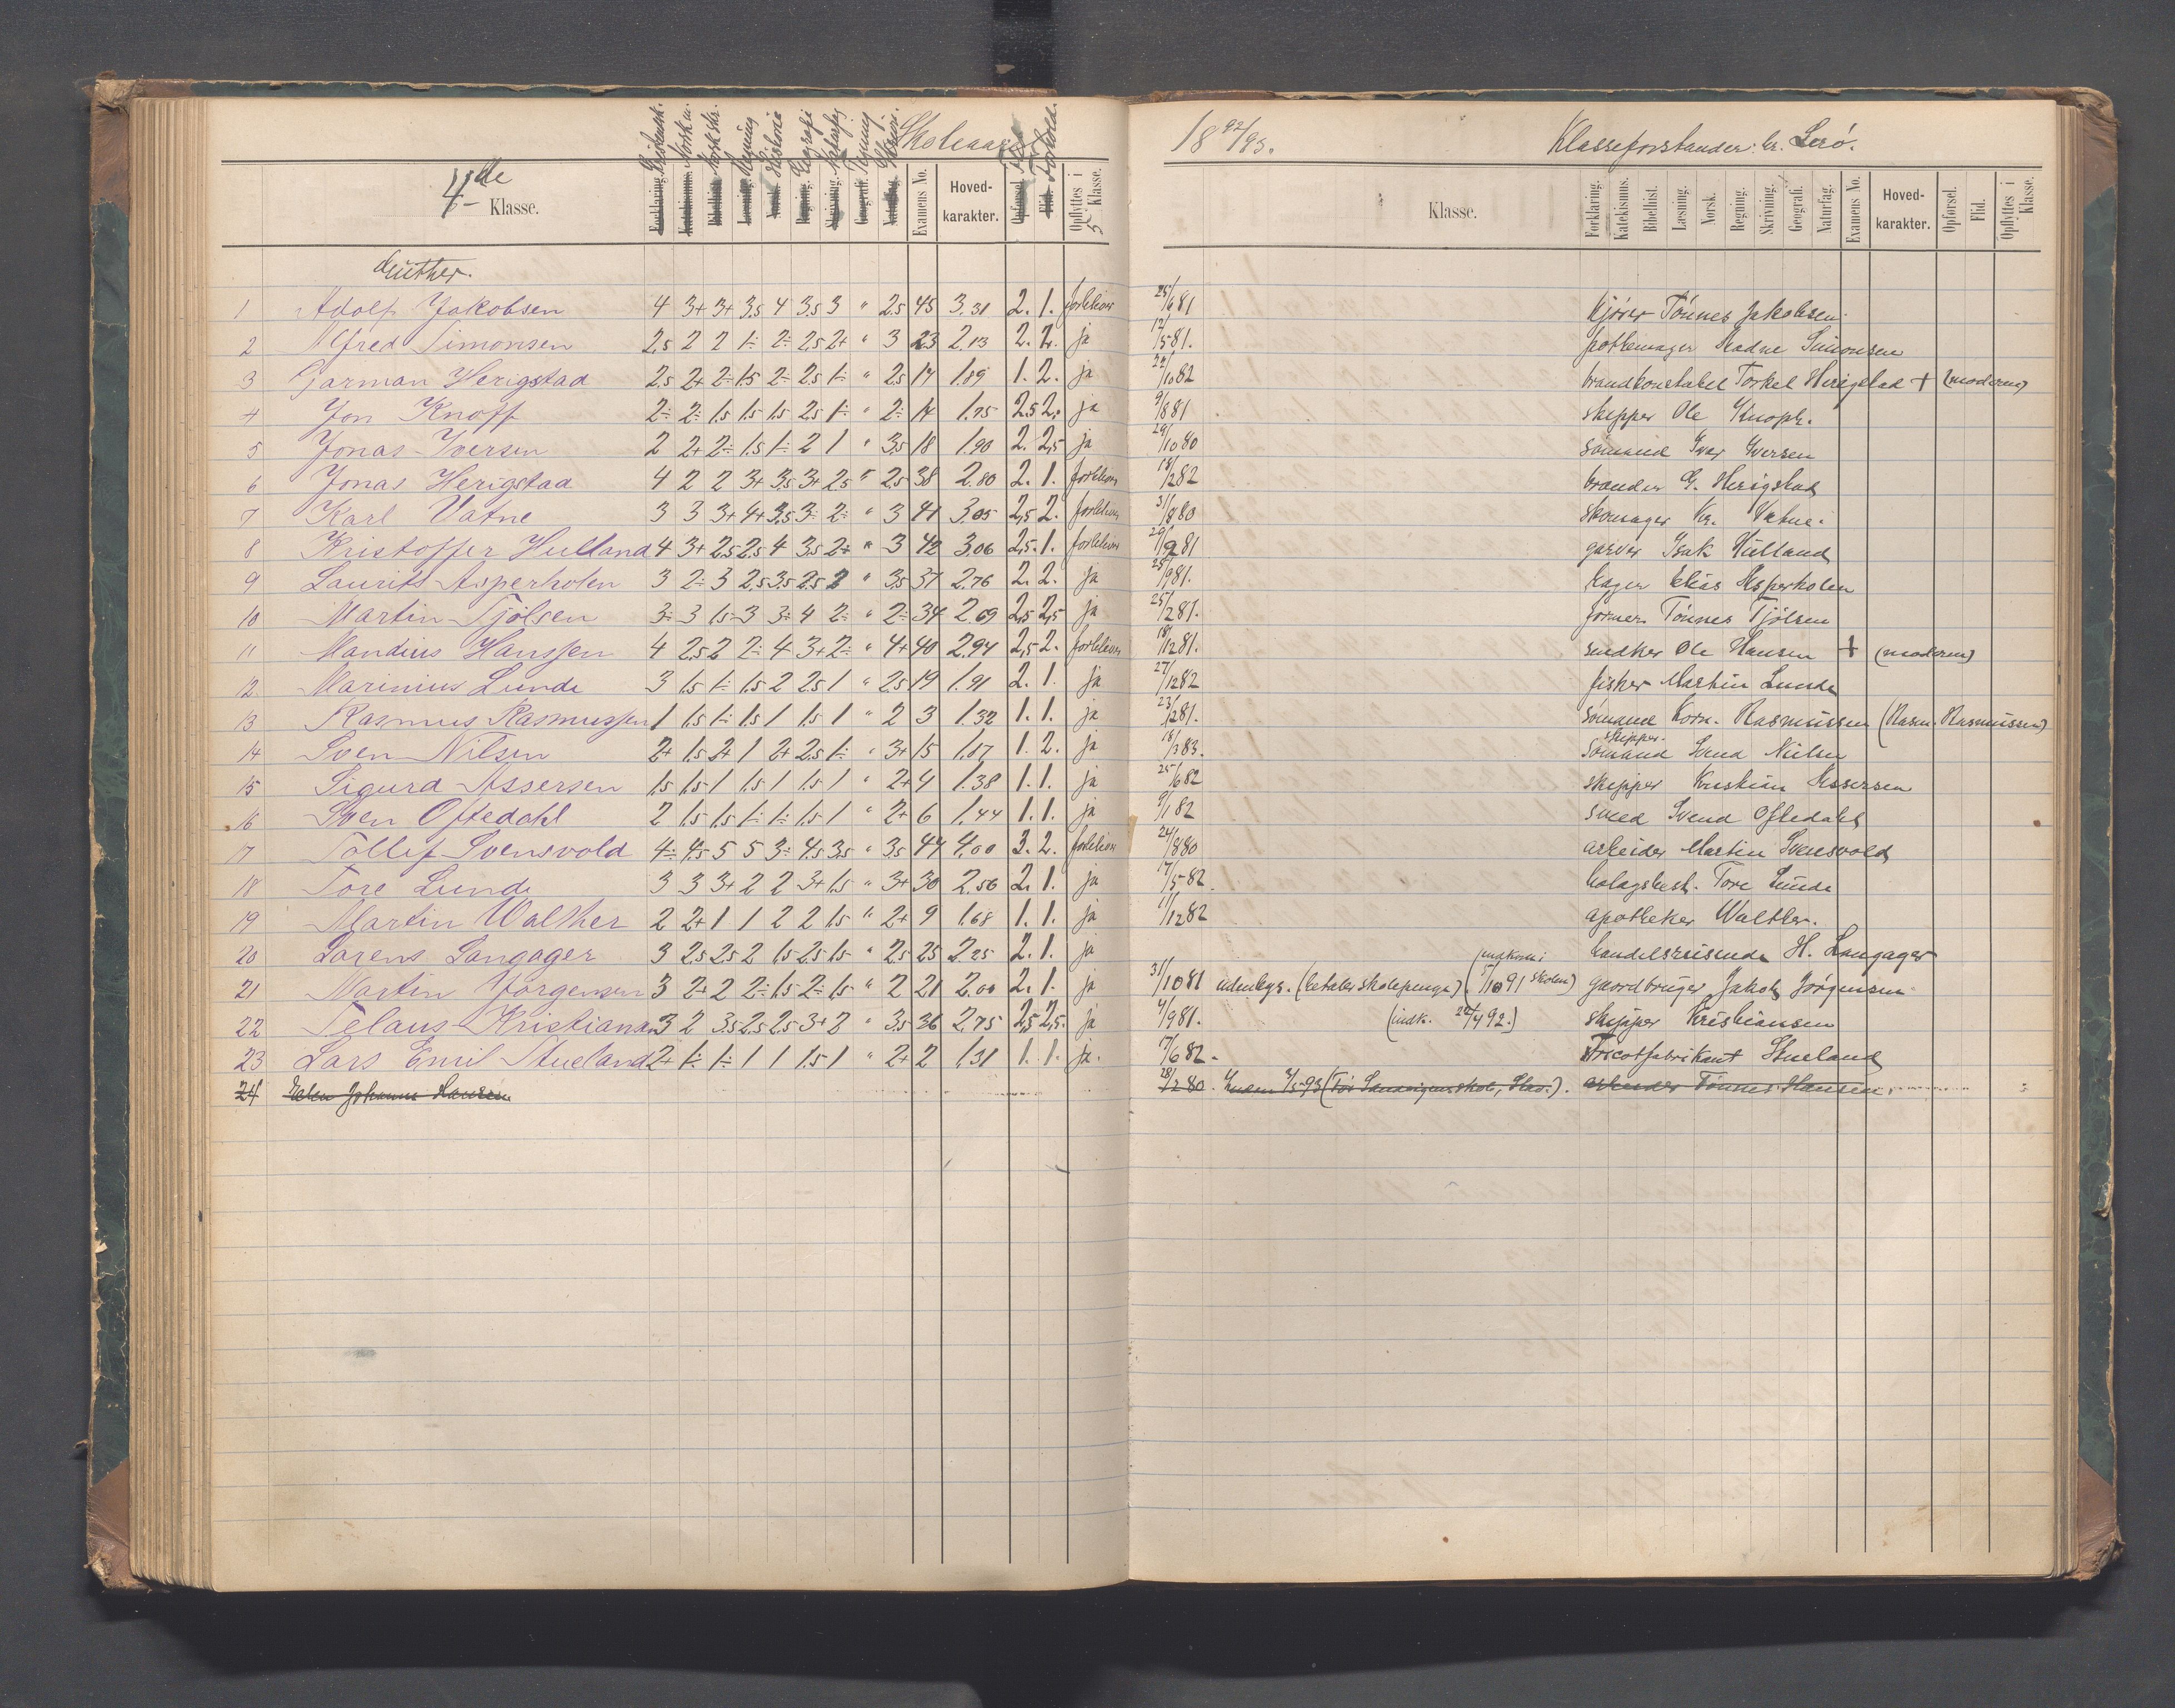 Skoleaar 18 92/93. Klasseforstander: hr. Lerö.
4de Klasse.
Kristendk. Norsk m. Norsk skr. Regning Historie Geografi Naturfag Tegning Skrivn.
Forklaring. Katekismus. Bibelhist. Læsning. Norsk. Regning. Skrivning. Geografi. Naturfag. Examens No. Hoved-karakter. Opførsel. Flid. Opflyttes i 5 Klasse.
Klasse. Forklaring. Katekismus. Bibelhist. Læsning. Norsk. Regning. Skrivning. Geografi. Naturfag. Examens No. Hoved-karakter. Opførsel. Flid. Opflyttes i Klasse.
Gutter.
1 Adolf Jakobsen 4 3+ 3+ 3,5 4 3,5 3 " 2,5 45 3.31 2. 1. forbliver 25/6 81 kjører Tönnes Jakobsen
2 Alfred Simonsen 2,5 2 2 1÷ 2÷ 2,5 2+ " 3 23 2.13 2. 2. ja 12/5 81. pottemager Simonsen
3 Garman Herigstad 2,5 2+ 2÷ 1,5 2÷ 2,5 1÷ " 2,5 17 1.89 1. 2. ja 22/10 82 brandkonstabel Torkel Herigstad + (moderen)
4 Jon Knoff 2÷ 2÷ 1,5 1,5 1,5 2,5 1÷ " 2÷ 14 1.75 2,5 2. ja 9/8 81 skipper Ole Knoph.
5 Jonas Iversen 2 2+ 2÷ 1,5 1÷ 2 1 " 3,5 18 1.90 2. 2,5 ja 29/10 80 sömand Ivar Iversen
6 Jonas Herigstad 4 2 2 3+ 3,5 3+ 2,5 " 2,5 38 2.80 2. 1. forbliver 18/2 82 brander G. Herigstad
7 Karl Vatne 3 3 3+ 4+ 3,5 3÷ 2÷ " 3 41 3.05 2,5 2. forbliver 31/8 80 skomager Kr. Vatne.
8 Kristoffer Hulland 4 3+ 2,5 2,5 4 3,5 2+ " 3 42 3.06 2,5. 1. forbliver 20/9 81 garver Isak Hulland
9 Laurits Asperholen 3 2÷ 3 2,5 3,5 2,5 2 " 3,5 37 2.76 2. 2. ja 25/9 81. bager Elias Asperholen
10 Martin Tjölsen 3÷ 3 1,5 3 3÷ 4 2÷ " 2÷ 34 2.69 2,5 2,5 ja 25/2 81. former Tönnes Tjölsen
11 Mandius Hanssen 4 2,5 2 2÷ 4 3+ 2÷ " 4+ 40 2.94 2,5 2. forbliver 18/12 81. snedker Ole Hansen + (moderen)
12 Marinius Lunde 3 1,5 1÷ 1,5 2 2,5 1 " 2,5 19 1.91 2. 1. ja 27/12 82 fisker Martin Lunde
13 Rasmus Rasmussen 1 1,5 1÷ 1,5 1 1,5 1 " 2 3 1.32 1. 1. ja 23/2 81. sömand Korn. Rasmussen (Rasm. Rasmussen)
14 Sven Nilsen 2+ 1,5 2+ 1 2+ 2,5 1÷ " 3+ 15 1.87 1. 2. ja 18/3 83. skipper sömand Svend Nilsen
15 Sigurd Assersen 1,5 1,5 1 1,5 1 1,5 1 " 2+ 4 1.38 1. 1. ja 25/6 82 skipper Kristian Assersen
16 Sven Oftedahl 2 1,5 1,5 1÷ 1÷ 1,5 1 " 2+ 6 1.44 1. 1. ja 9/1 82 smed Svend Oftedahl
17 Tollef Svensvold 4÷ 4,5 5 5 3÷ 4,5 3,5 " 3,5 44 4.00 3. 2. forbliver 24/8 80 arbeider Martin Svensvold
18 Tore Lunde 3 3 3+ 2 2 3+ 1,5 " 3+ 30 2.56 2. 1. ja 17/5 82. Tore Lunde
19 Martin Walther 2 2+ 1 1 2 2 1,5 " 2+ 9 1.68 1. 1. ja 11/12 82 apotheker Walther.
20 Lorens Langager 3 2,5 2,5 2 1,5 2,5 1,5 " 2,5 25 2.25 2. 1. ja handelsreisende H. Langager
21 Martin Jörgensen 3 2+ 2 2÷ 1,5 2÷ 1,5 " 2 21 2.00 2. 1. ja 31/10 81 udenbys. (betaler skolepenge) (indkom i skolen 1/10 91) gaardbruger Jakob Jörgensen
22 Telaus Kristiansen 3 2 3,5 2,5 2,5 3+ 3 " 3,5 36 2.75 2,5 2,5. ja 4/9 81. (indk. 22/4 92.) skipper Kristiansen
23 Lars Emil Stueland 2+ 1÷ 1÷ 1 1 1,5 1 " 2+ 2 1.31 1. 1. ja. 17/6 82. tricotfabrikant Stueland
24 Johannes Hansen 28/2 80. 2/5 93 Stav.). arbeider Tönnes Hansen.